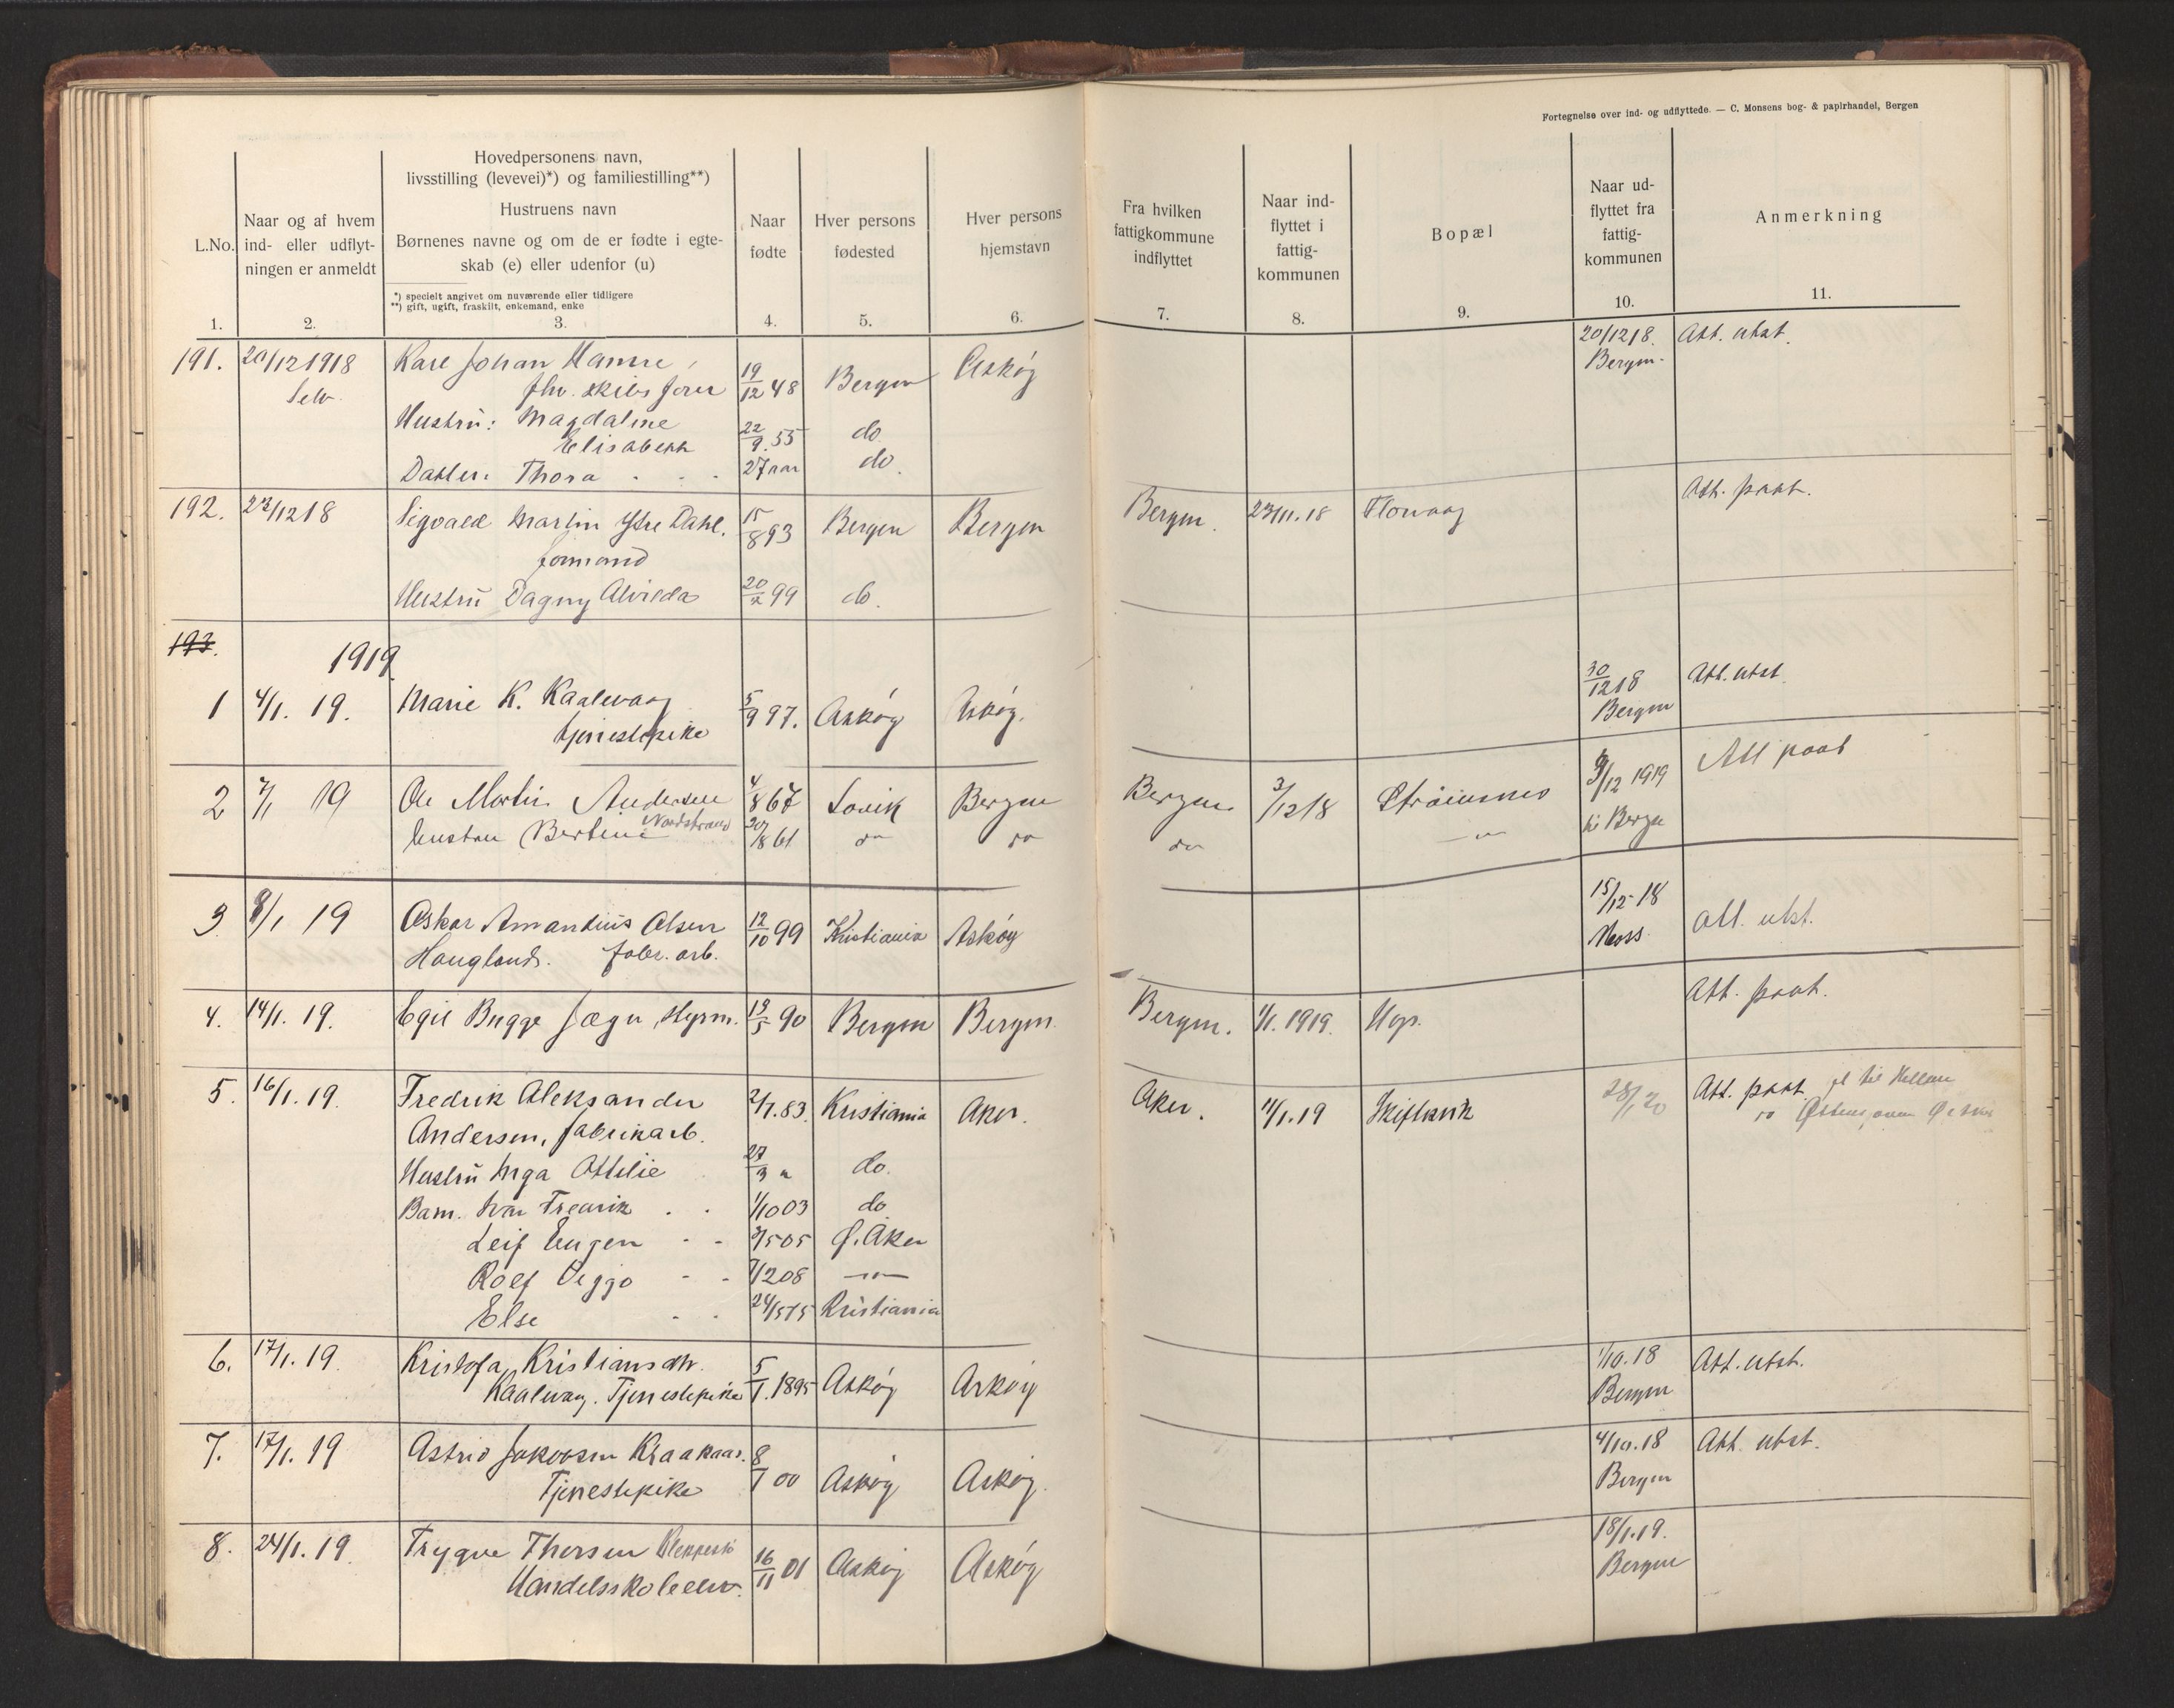 Fortegnelse over ind- og udflyttede. — C. Monsens bog- & papirhandel, Bergen
L.No.
1.
Naar og af hvem
ind- eller udflyt-
ningen er anmeldt
2.
Hovedpersonens navn,
livsstilling (levevei)*) og familiestilling**)
Hustruens navn
Børnenes navne og om de er fødte i egte-
skab (e) eller udenfor (u)
*) specielt angivet om nuværende eller tidligere
**) gift, ugift, fraskilt, enkemand, enke
3.
Naar
fødte
4.
Hver persons
fødested
5.
Hver persons
hjemstavn
6.
Fra hvilken
fattigkommune
indflyttet
7.
Naar ind-
flyttet i
fattig-
kommunen
8.
Bopæl
9.
Naar ud-
flyttet fra
fattig-
kommunen
10.
Anmerkning
11.
191. 20/12 1918 Karl Johan Hamre, 20/12 18. Att. utst.
Selv. fhv. skibsfører 19/12 48 Bergen Askøy Bergen.
Hustru: Magdaline
Elisabeth 22/9.55 do
Datter: Thora 27 aar do.
192. 23/12 18 Sigvald Martin Dahl. 15/8 93 Bergen Bergen Bergen. 23/11.18 Florvaag Att. paat.
formand
Hustru Dagny Alvilda 20/2 99 do.
193.
1919
1 4/1. 19. Marie K. Kaalevaag 5/9 97. Askøy Askøy. 30/12 18 Att. utst.
tjenestepike Bergen
2 7/1 19 Ole Martin Andersen 4/8 67 Lavik Bergen Bergen 3/12 18 Strömsnes 9/12 1919 Att paat
hustru Bertine Nordstrand 20/8 61 do do do til Bergen
3 8/1 19 Oskar Amandius Olsen 12/10 99 Kristiania Askøy 15/12 18 Att. utst.
Hauglands. fabr. arb. Moss
4. 14/1. 19. Egil Bugge Jæger, styrm. 19/5 90 Bergen Bergen. Bergen. 1/1. 1919. Hop. Att. paat.
5. 16/1. 19. Fredrik Aleksander 2/7.83. Kristiania Aker. Aker. 11/1.19 Skiftesvik 28/1 20 Att. paat. fl til
Andersen, fabrikarb.
Hustru Inga Ottilie 27/3 " do.
Barn. Ivar Fredrik 1/10 03 do
Leif Eugen 3/5 05 Ø. Aker
Rolf Viggo 7/2 08 — " —
Else 24/5 15 Kristiania
6. 17/1. 19. Kristofa Kristiansdtr. 1/10.18 Att. utst.
Kaalevaag. Tjenestepike 5/1.1895 Askøy Askøy Bergen
7. 17/1. 19 Astrid Jakobsen Kraakaas. 8/1 00 Askøy Askøy. 4/10.18 Att. utst.
Tjenestepike Bergen
8. 24/1. 19. Trygve Thorsen Kleppestø 16/11 01 Askøy Askøy 18/1.19.
Handelsskoleelev. Bergen